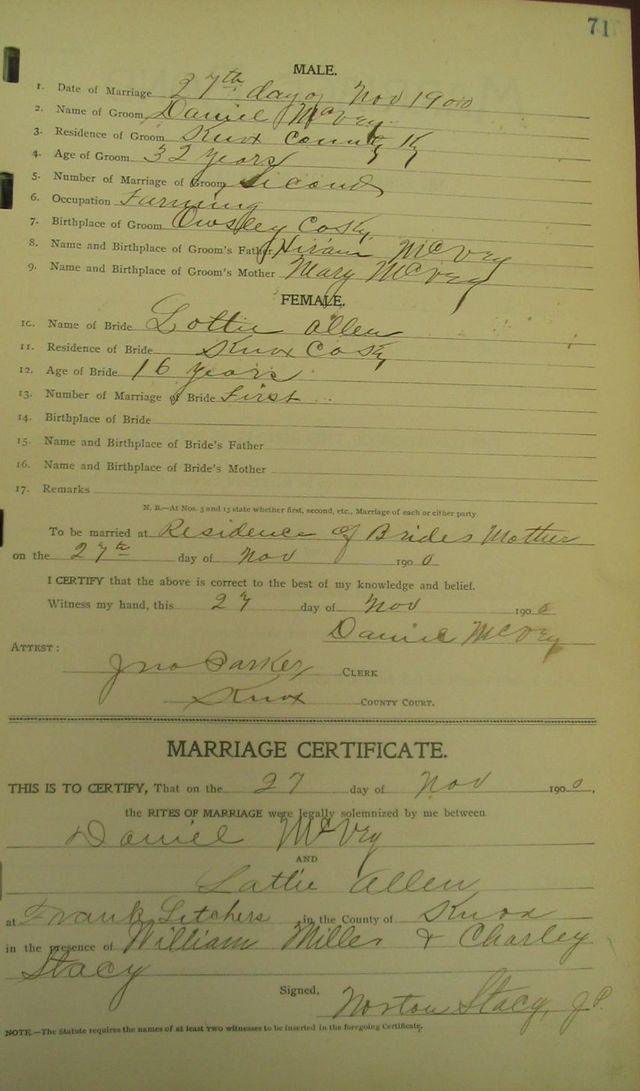 71
MALE.
1. Date of Marriage 27th day of Nov 1900
2. Name of Groom Daniel McVey
3. Residence of Groom Knox County Ky
4. Age of Groom 32 years
5. Number of Marriage of Groom Second
6. Occupation Farming
7. Birthplace of Groom Owsley Co Ky,
8. Name and Birthplace of Groom's Father Hiram McVey
9. Name and Birthplace of Groom's Mother Mary McVey
FEMALE.
10. Name of Bride Lottie Allen
11. Residence of Bride Knox Co Ky
12. Age of Bride 16 years
13. Number of Marriage of Bride First
14. Birthplace of Bride
15. Name and Birthplace of Bride's Father
16. Name and Birthplace of Bride's Mother
17. Remarks
N. B.—At Nos. 5 and 13 state whether first, second, etc., Marriage of each or either party
To be married at Residence of Brides Mother
on the 27th day of Nov 1900
I CERTIFY that the above is correct to the best of my knowledge and belief.
Witness my hand, this 27 day of Nov 1900
Daniel McVey
ATTEST:
Jno Parker CLERK
Knox COUNTY COURT.
MARRIAGE CERTIFICATE.
THIS IS TO CERTIFY, That on the 27 day of Nov 1900,
the RITES OF MARRIAGE were legally solemnized by me between
Daniel McVey
AND
Lottie Allen
at Frank Letchers in the County of Knox
in the presence of William Miller & Charley
Stacy
Signed,
Norton Stacy, JP.
NOTE.—The Statute requires the names of at least TWO witnesses to be inserted in the foregoing Certificate.